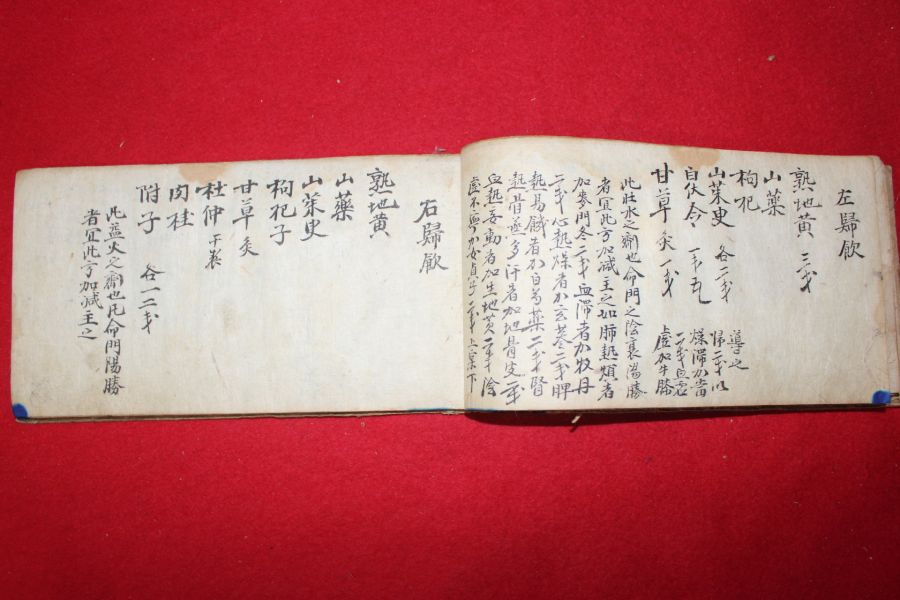 左歸飲
熟地黃 三戔
山藥
枸杞
山茱臾 各二戔
白伏令 一戔五
甘草 炙一戔
此壯水之劑也命門之陰衰陽勝
者宜此方加減主之如肺熱煩者
加麥門冬二戔血滯者加牧丹
二戔心熱燥者加玄蔘二戔脾
熱易飢者加白芍藥二戔腎
熱骨蒸多汗者加地骨皮二戔
血熱妄動者加生地黃二戔陰
虛不寧加女貞子二戔上實下
虛加牛膝
二戔
燥滯加當
歸二戔以
導之
右歸飲
熟地黃
山藥
山茱臾
枸杞子
甘草 炙
杜仲
肉桂
附子 各一二戔
此益火之劑也凡命門陽勝
者宜此方加減主之